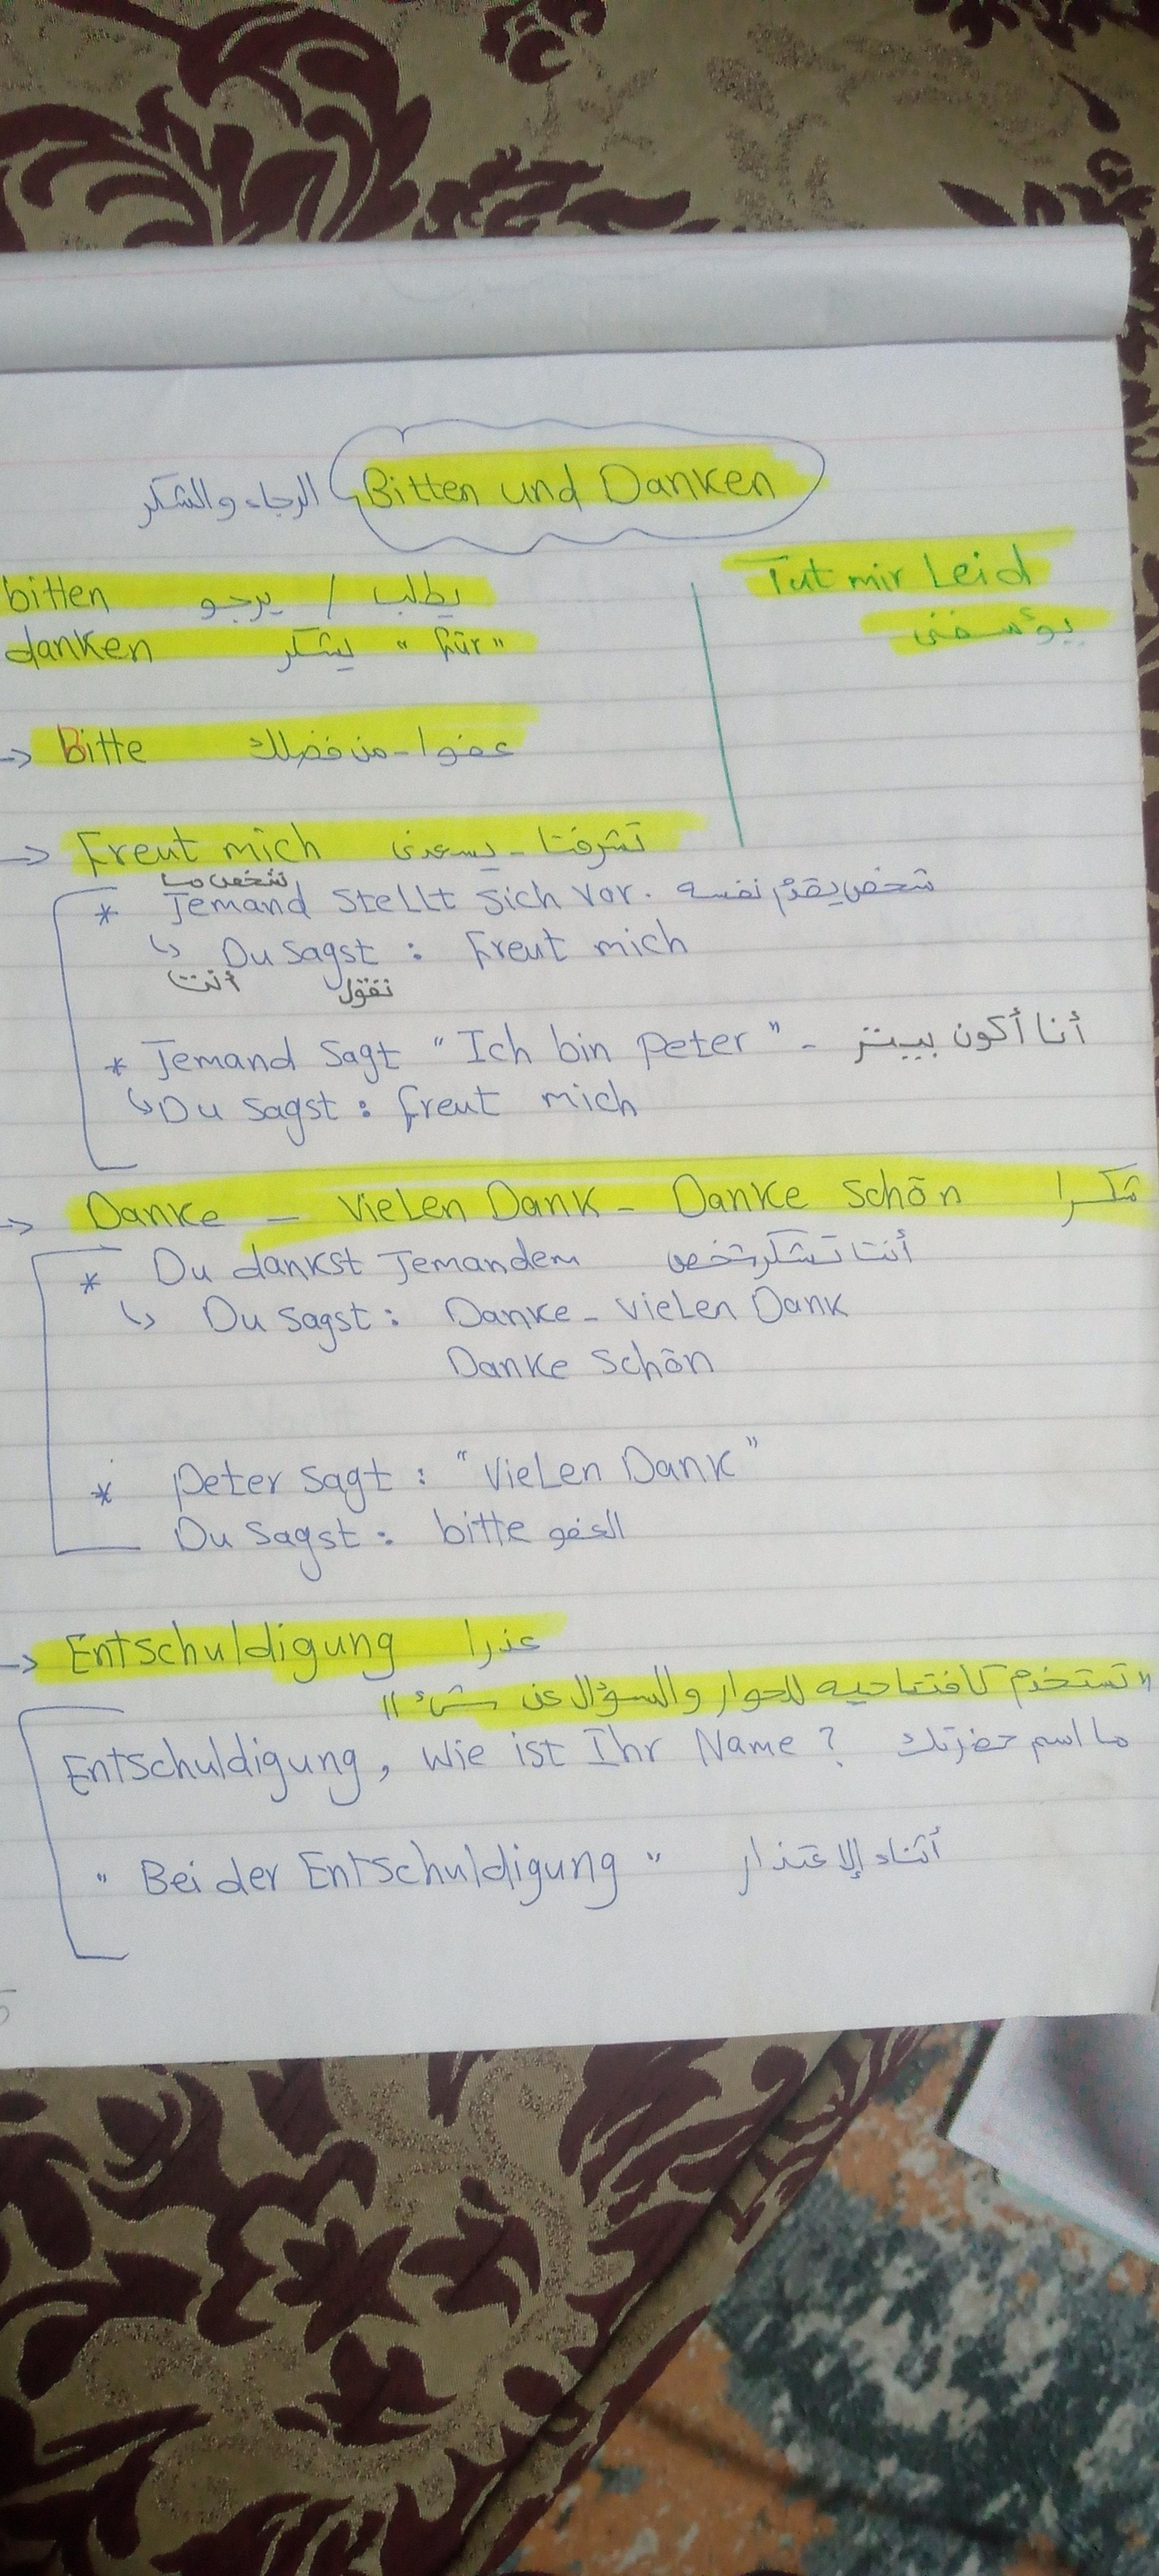 Bitten und Danken الرجاء والشكر
Tut mir Leid
يؤسفنى
bitten يطلب / يرجو
danken يشكر "für"
-> Bitte عفوا - من فضلك
-> Freut mich تشرفنا - يسعدنى
شخص ما
* Jemand stellt sich vor. شخص يقدم نفسه
↳ Du sagst : Freut mich
أنت تقول
* Jemand sagt "Ich bin Peter" - أنا أكون بيتر
↳ Du sagst : freut mich
-> Danke - Vielen Dank - Danke schön شكرا
* Du dankst Jemandem أنت تشكر شخص
↳ Du sagst : Danke - Vielen Dank
Danke schön
* Peter sagt : "Vielen Dank"
Du sagst : bitte العفو
-> Entschuldigung عذرا
"تستخدم كافتتاحيه للحوار والسؤال عن شئ"
Entschuldigung, Wie ist Ihr Name ? ما اسم حضرتك
"Bei der Entschuldigung" أثناء الإعتذار